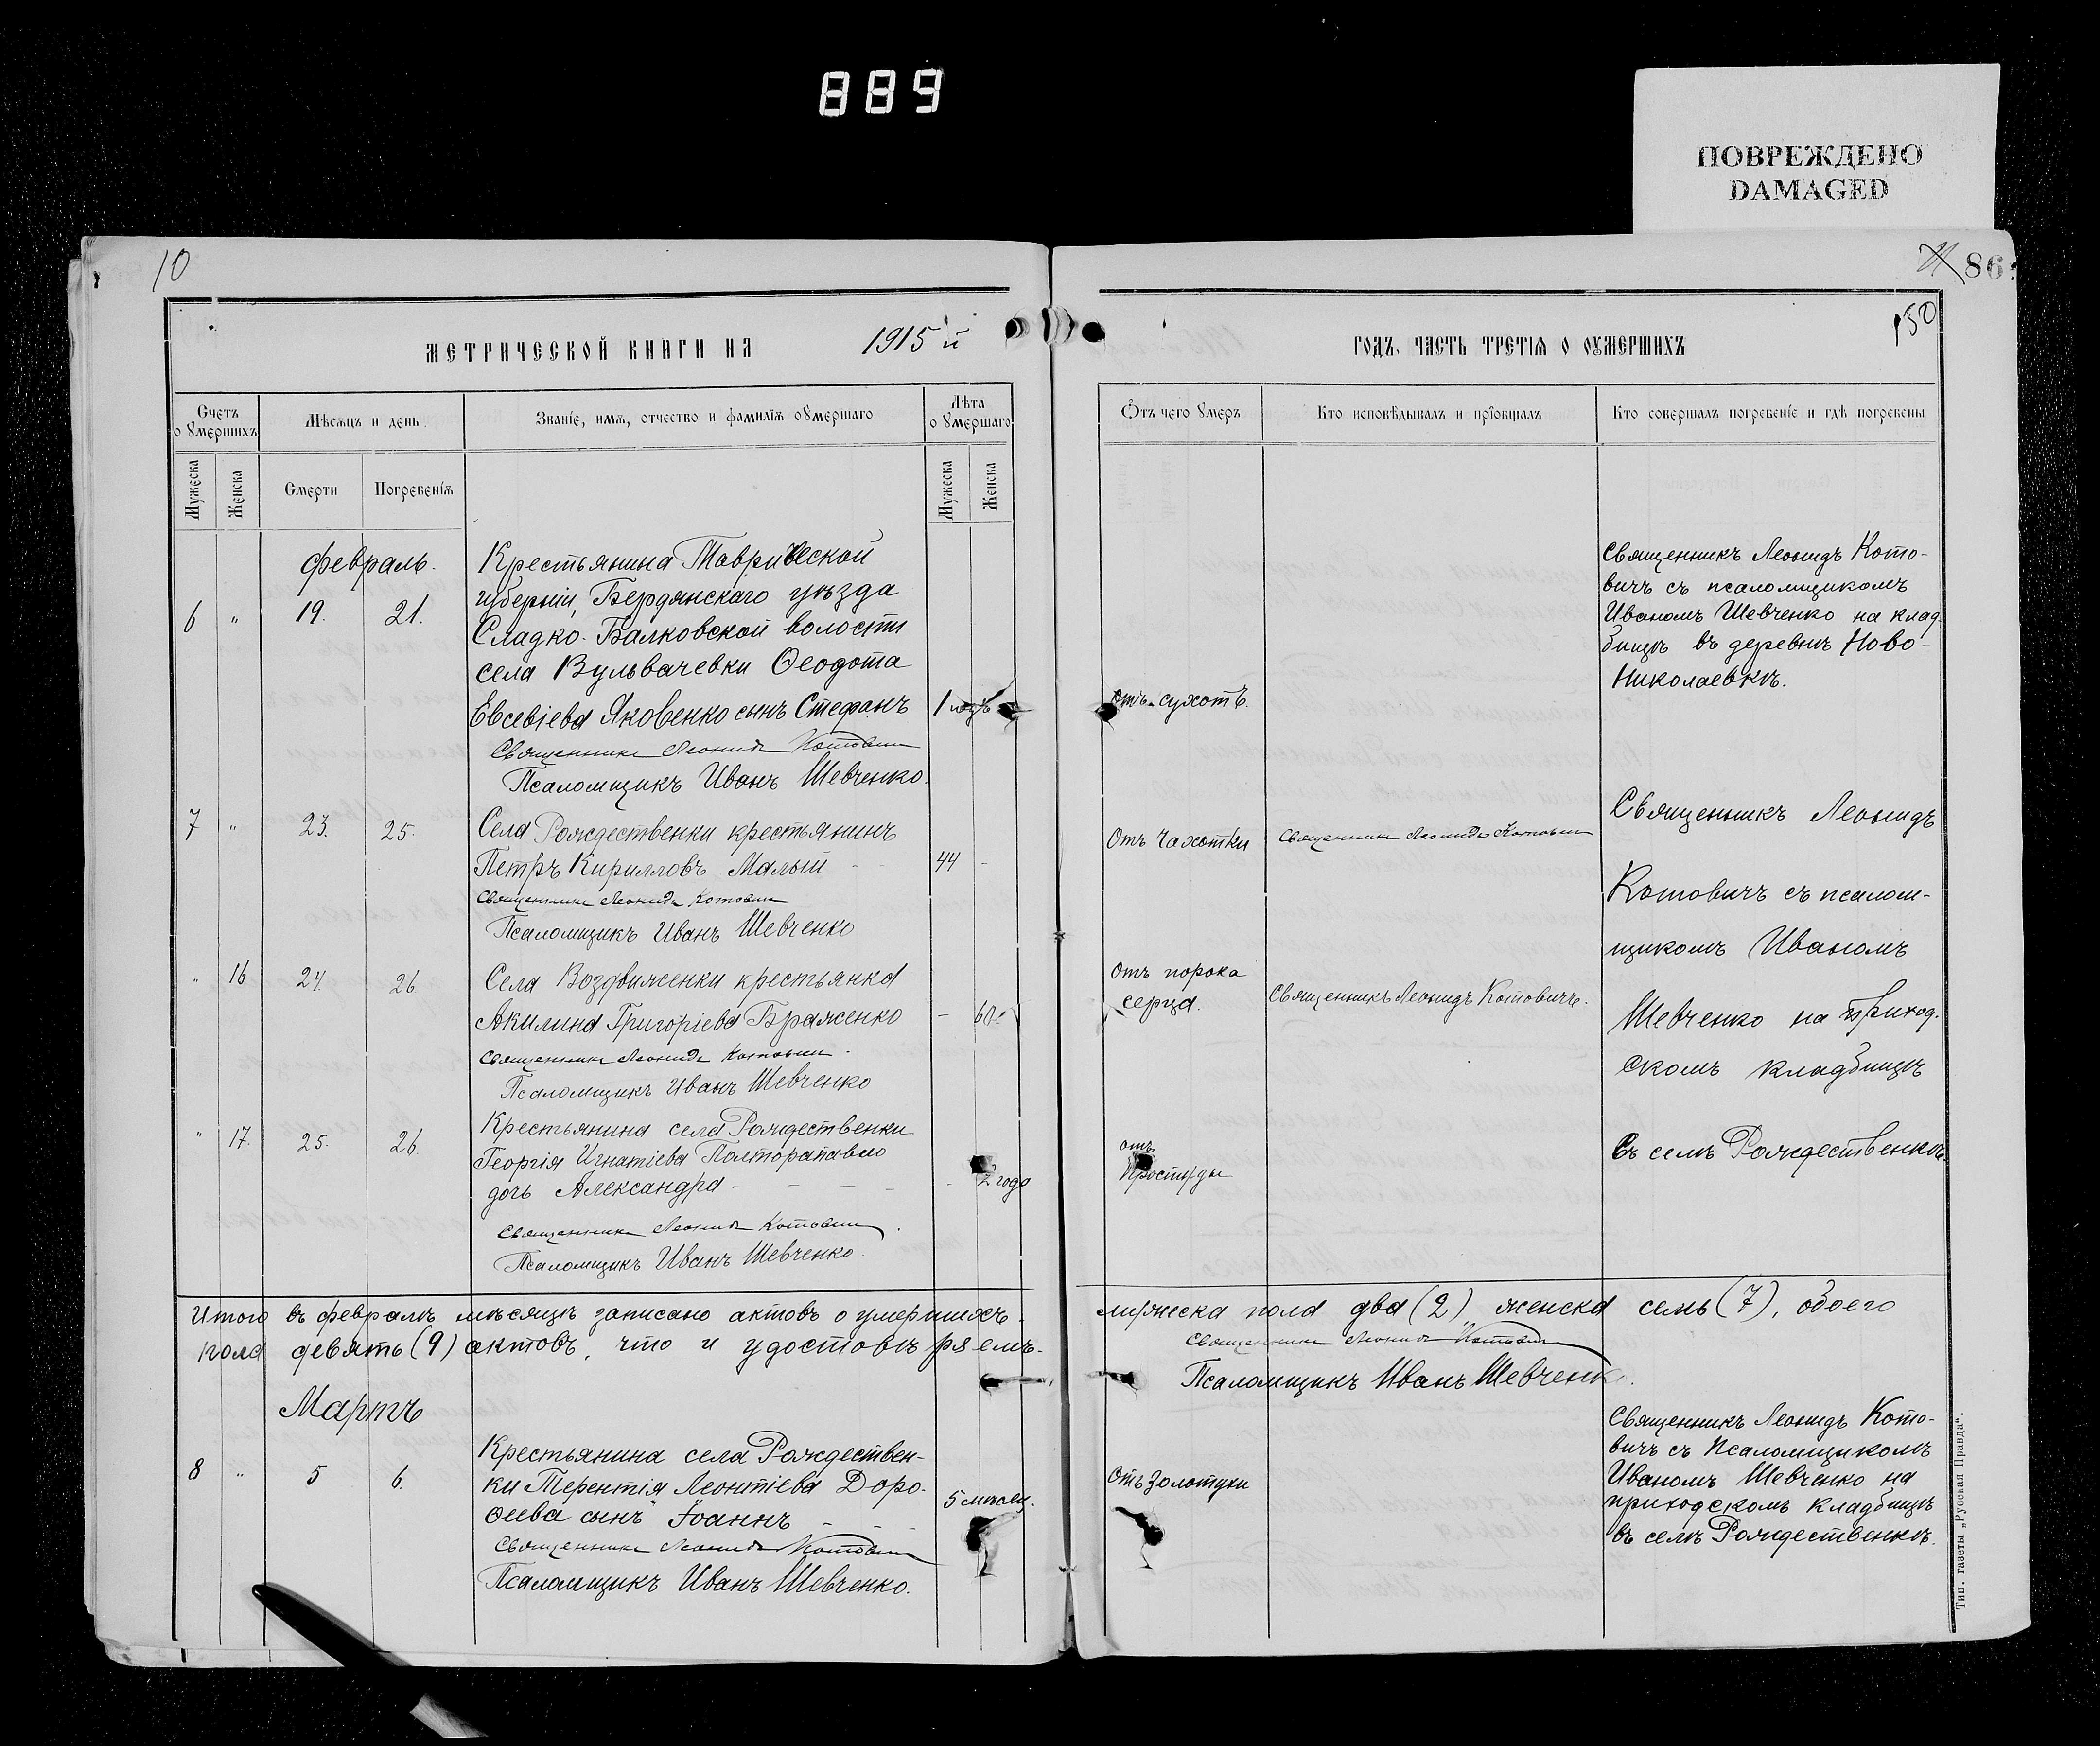 889
ПОВРЕЖДЕНО
DAMAGED
10
86
150
МЕТРИЧЕСКОЙ КНИГИ НА 1915 й
ГОДЪ, ЧАСТЬ ТРЕТІЯ О ОУМЕРШИХЪ
Счетъ о умершихъ
Мѣсяцъ и день
Званіе, имя, отчество и фамилія оумершаго
Лѣта оумершаго
Мужеска
Женска
Смерти
Погребенія
Мужеска
Женска
Отъ чего умеръ
Кто исповѣдывалъ и пріобщалъ
Кто совершалъ погребеніе и гдѣ погребены
Февраль.
6 " 19. 21.
Крестьянина Таврической
губерніи, Бердянскаго уѣзда
Сладко-Балковской волости
села Вульвачевки Ѳеодота
Евсевіева Яковенко сынъ Стефанъ
1 годъ
Священникъ Леонидъ Котовичъ
Псаломщикъ Иванъ Шевченко.
отъ сухотъ.
Священникъ Леонидъ Кото-
вичъ съ псаломщикомъ
Иваномъ Шевченко на клад-
бищѣ въ деревнѣ Ново-
Николаевкѣ.
7 " 23. 25.
Села Рождественки крестьянинъ
Петръ Кирилловъ Малый - -
44 -
Священникъ Леонидъ Котовичъ
Псаломщикъ Иванъ Шевченко
Отъ Чахотки
Священникъ Леонидъ Котовичъ
Священникъ Леонидъ
Котовичъ съ псалом-
щикомъ Иваномъ
Шевченко на приход-
скомъ кладбищѣ
Въ селѣ Рождественкѣ.
" 16 24. 26.
Села Воздвиженки крестьянка
Акилина Григоріева Браженко
- 60.
Священникъ Леонидъ Котовичъ.
Псаломщикъ Иванъ Шевченко
Отъ порока
серца.
Священникъ Леонидъ Котовичъ.
" 17. 25. 26.
Крестьянина села Рождественки
Георгія Игнатіева
дочь Александра - - - -
- 2 года
Священникъ Леонидъ Котовичъ.
Псаломщикъ Иванъ Шевченко.
отъ
простуды
Итого въ февралѣ мѣсяцѣ записано актовъ о умершихъ
мужеска пола два (2), женска семь (7), обоего
пола девять (9) актовъ, что и удостовѣряемъ.
Священникъ Леонидъ Котовичъ
Псаломщикъ Иванъ Шевченко.
Мартъ
8 " 5 6.
Крестьянина села Рождествен-
ки Терентія Леонтіева Доро-
ѳеева сынъ Іоаннъ - - -
5 мѣсяц.
Священникъ Леонидъ Котовичъ
Псаломщикъ Иванъ Шевченко.
Отъ Золотухи
Священникъ Леонидъ Кото-
вичъ съ Псаломщикомъ
Иваномъ Шевченко на
приходскомъ кладбищѣ
въ селѣ Рождественкѣ.
Тип. газеты „Русская Правда“.